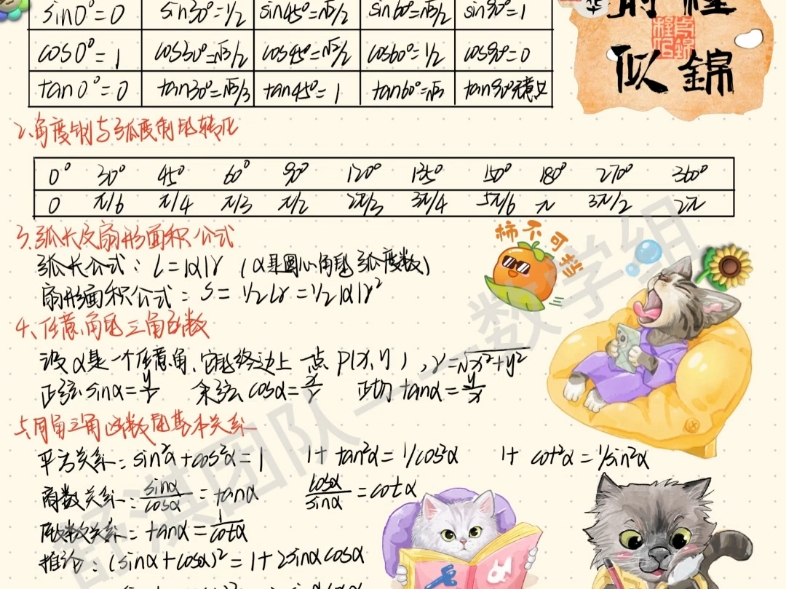 sin0°=0 sin30°=1/2 sin45°=√2/2 sin60°=√3/2 sin90°=1
cos0°=1 cos30°=√3/2 cos45°=√2/2 cos60°=1/2 cos90°=0
tan0°=0 tan30°=√3/3 tan45°=1 tan60°=√3 tan90°无意义
前程
似錦
2.角度制与弧度制的转化
0° 30° 45° 60° 90° 120° 135° 150° 180° 270° 360°
0 π/6 π/4 π/3 π/2 2π/3 3π/4 5π/6 π 3π/2 2π
3.弧长及扇形面积公式
柿不可挡
弧长公式：L=|α|r (α是圆心角的弧度数)
扇形面积公式：S=1/2Lr=1/2|α|r²
4.任意角的三角函数
设α是一个任意角,它的终边上一点P(x,y),r=√x²+y²
正弦sinα=y/r 余弦cosα=x/r 正切tanα=y/x
5.同角三角函数的基本关系
平方关系：sin²α+cos²α=1 1+tan²α=1/cos²α 1+cot²α=1/sin²α
商数关系：sinα/cosα=tanα cosα/sinα=cotα
倒数关系：tanα=1/cotα
推论：(sinα+cosα)²=1+2sinαcosα
团队——数学组